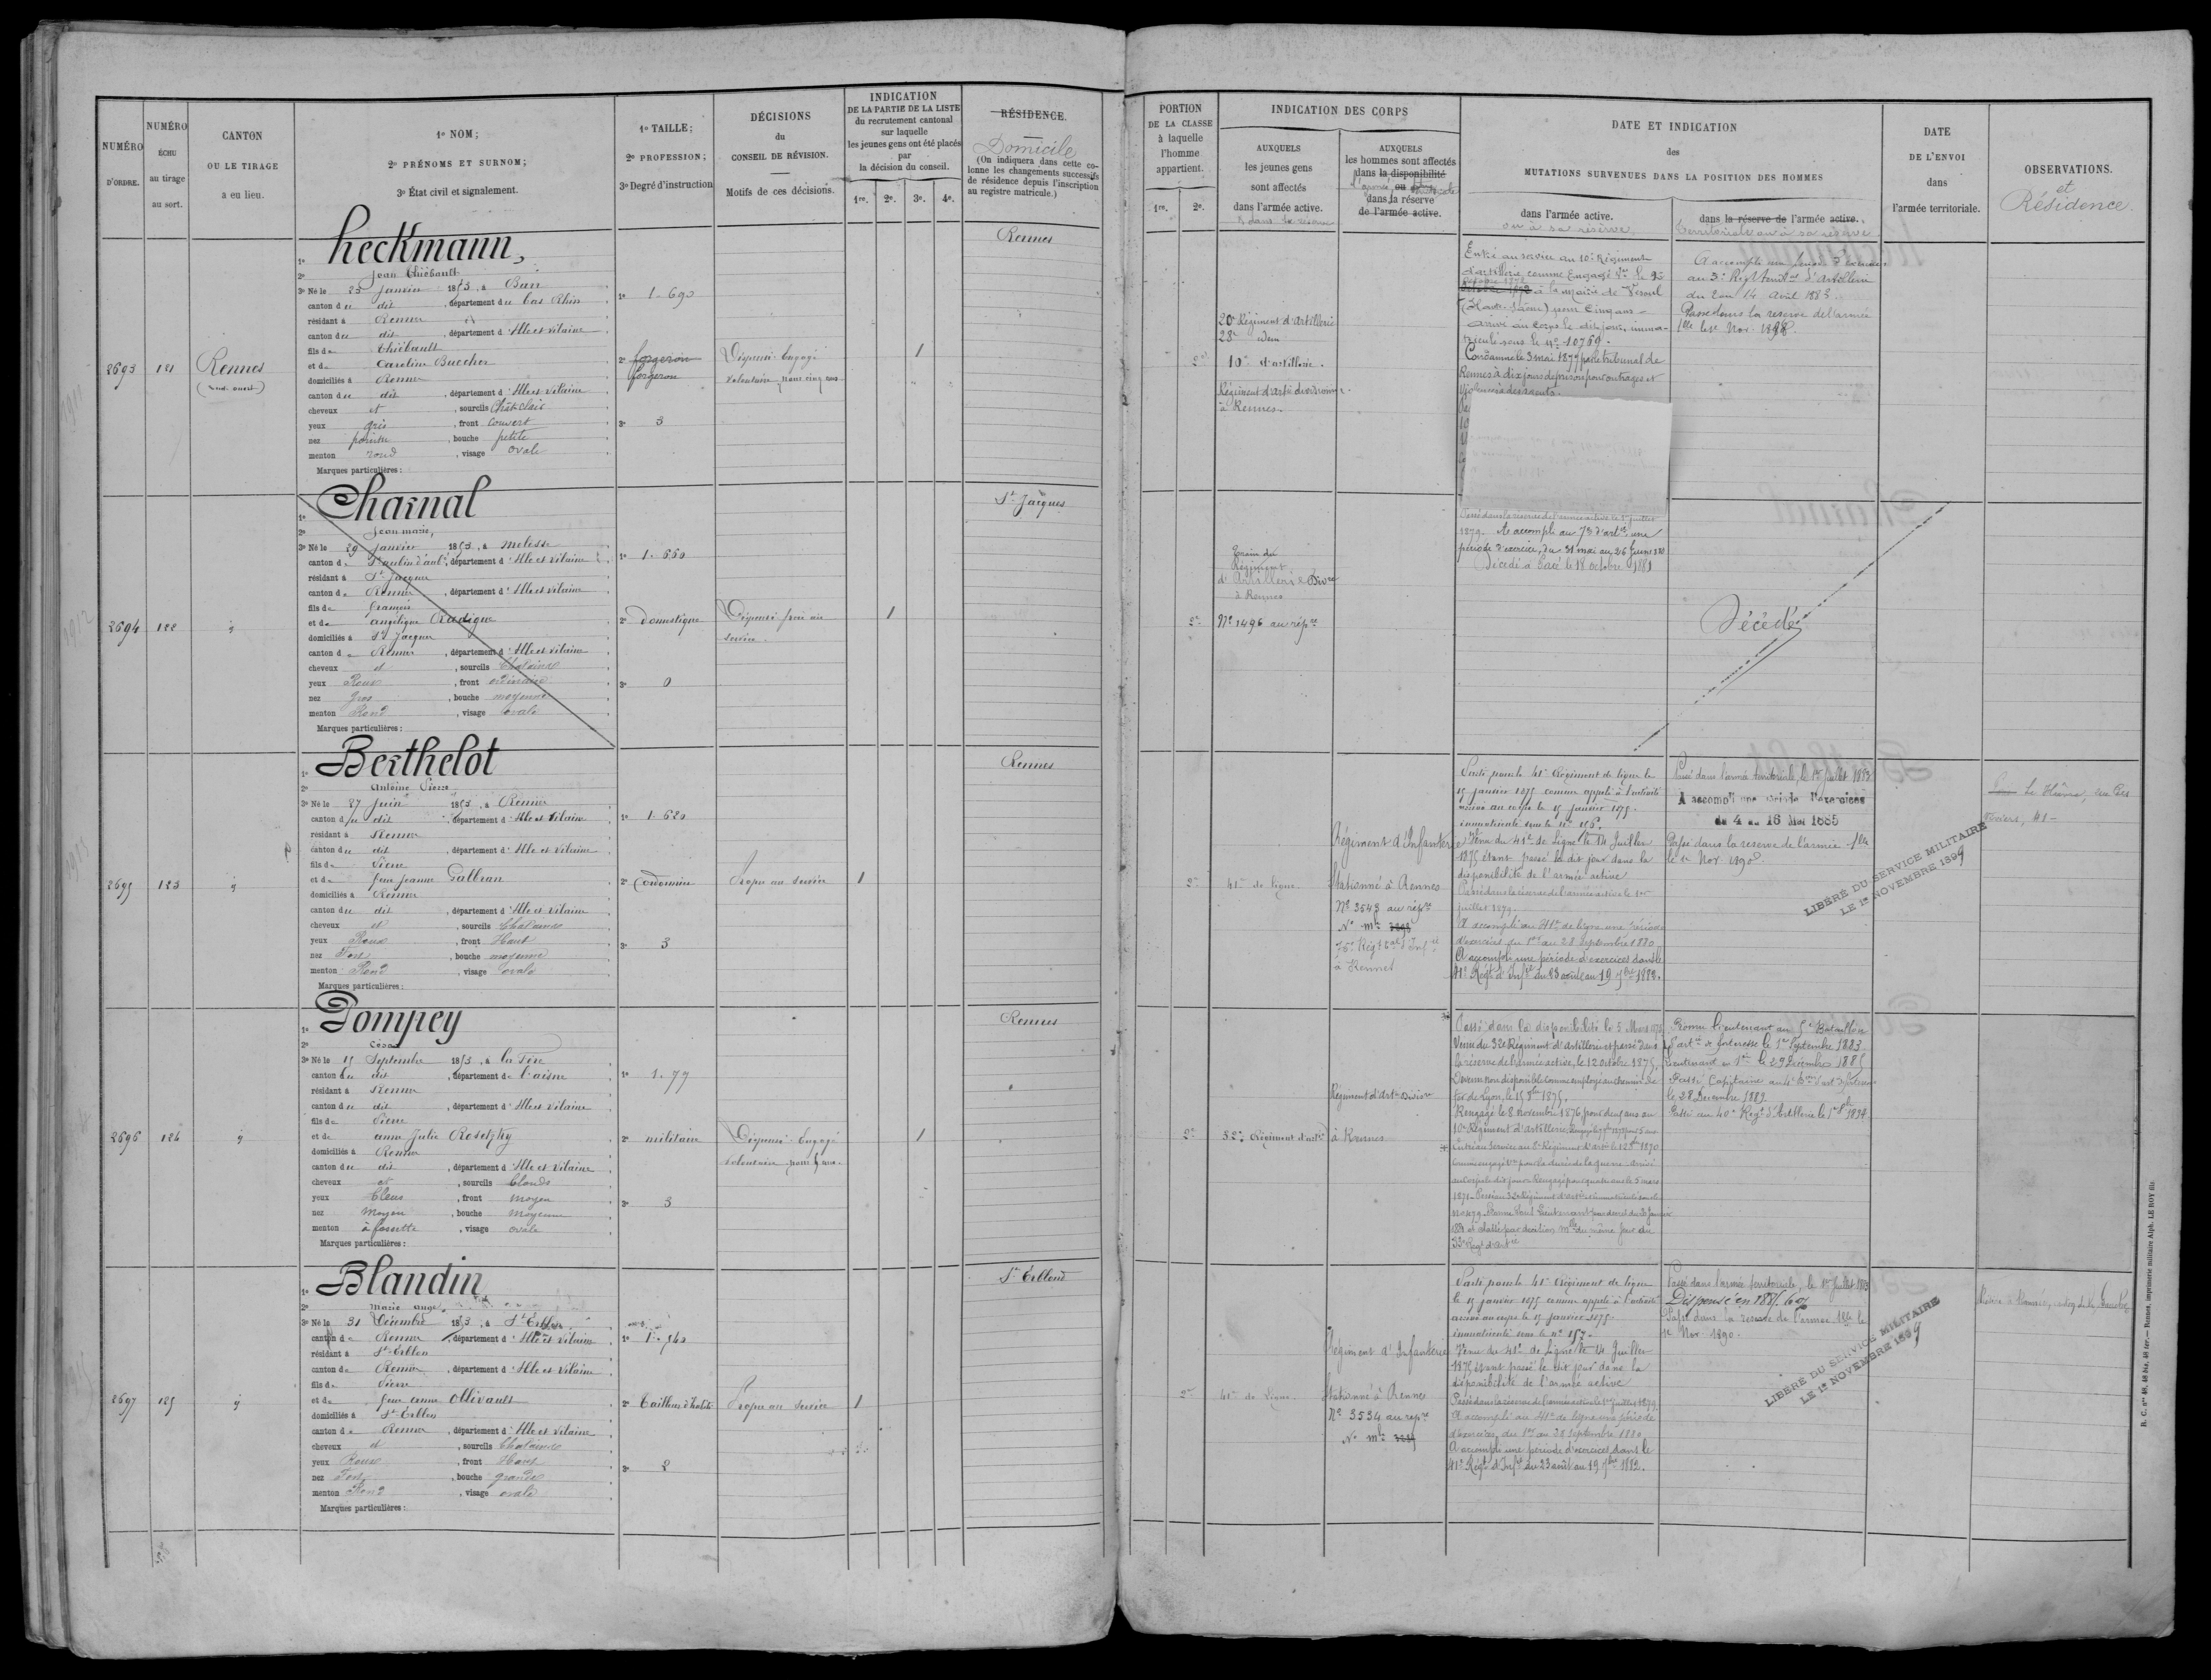 NUMÉRO D'ORDRE.
NUMÉRO ÉCHU au tirage au sort.
CANTON OU LE TIRAGE a eu lieu.
1º NOM;
2º PRÉNOMS ET SURNOM;
3º État civil et signalement.
1º TAILLE;
2º PROFESSION;
3º Degré d'instruction
DÉCISIONS du CONSEIL DE RÉVISION.
Motifs de ces décisions.
INDICATION
DE LA PARTIE DE LA LISTE
du recrutement cantonal
sur laquelle
les jeunes gens ont été placés
par
la décision du conseil.
1re. 2e. 3e. 4e.
RÉSIDENCE.
Domicile
(On indiquera dans cette colonne les changements successifs de résidence depuis l'inscription au registre matricule.)
PORTION DE LA CLASSE à laquelle l'homme appartient.
1re. 2e.
INDICATION DES CORPS
AUXQUELS les jeunes gens sont affectés dans l'armée active.
& dans la réserve
AUXQUELS les hommes sont affectés dans la disponibilité ou dans la réserve de l'armée active.
DATE ET INDICATION
des
MUTATIONS SURVENUES DANS LA POSITION DES HOMMES
dans l'armée active.
ou à sa réserve
dans la réserve de l'armée active.
territoriale ou à sa réserve
DATE DE L'ENVOI dans l'armée territoriale.
OBSERVATIONS.
et
Résidence.
2693
121
Rennes
(sud-ouest)
heckmann,
Jean Thiébault
3º Né le 25 Janvier 1853, à Barr
canton du dit, département du bas Rhin
résidant à Rennes
canton du dit, département d'Ille et Vilaine
fils de Thiébault
et de Caroline Buecher
domiciliés à Rennes
canton du dit, département d'Ille et Vilaine
cheveux et, sourcils Chât. clair
yeux gris, front Couvert
nez pointu, bouche petite
menton rond, visage ovale
Marques particulières :
1º 1.690
2º forgeron
forgeron
3º 3
Dispensé Engagé
volontaire pour cinq ans
1
Rennes
2e
20e Régiment d'Artillerie
28e idem
10e d'artillerie.
Régiment d'artie divisionnre
à Rennes.
Entré au service au 10e Régiment
d'artillerie comme Engagé Vre le 23
octobre 1872
octobre 1872 à la mairie de Vesoul
(Haute-Saône) pour Cinq ans -
arrivé au corps le dit jour, imma-
triculé sous le Nº 10769.
Condamné le 3 mai 1877 par le tribunal de
Rennes à dix jours de prison pour outrages et
violences à des agents.
A accompli une période d'exercices
au 3e Régt territal d'artillerie
du 2 au 14 avril 1883.
Passé dans la réserve de l'armée
tle le 1er Nov. 1892.
2694
122
Charnal
Jean marie,
3º Né le 29 Janvier 1853, à Melesse
canton de St Aubin d'Aubé, département d'Ille et Vilaine
résidant à St Jacques
canton de Rennes, département d'Ille et Vilaine
fils de François
et de angélique Radigue
domiciliés à St Jacques
canton de Rennes, département d'Ille et Vilaine
cheveux et, sourcils Chatains
yeux Roux, front ordinaire
nez Gros, bouche moyenne
menton Rond, visage ovale
Marques particulières :
1º 1.660
2º domestique
3º 0
Dispensé frère au
service.
1
St Jacques
2e
Train du
Régiment
d'Artillerie Divre
à Rennes
Nº 1496 au répre
Passé dans la réserve de l'armée active le 1er juillet
1879. A accompli au 7e d'artie une
période d'exercice, du 31 mai au 26 Juin 1880
Décédé à Pacé le 18 octobre 1881
Décédé
2695
123
Berthelot
Antoine Pierre
3º Né le 27 Juin 1853, à Rennes
canton du dit, département d'Ille et Vilaine
résidant à Rennes
canton du dit, département d'Ille et Vilaine
fils de Pierre
et de feue Jeanne Galbran
domiciliés à Rennes
canton du dit, département d'Ille et Vilaine
cheveux et, sourcils Chatains
yeux Roux, front Haut
nez Fort, bouche moyenne
menton Rond, visage ovale
Marques particulières :
1º 1.620
2º Cordonnier
3º 3
Propre au service
1
Rennes
2e
41e de ligne
Régiment d'Infanterie
Stationné à Rennes
Nº 3543 au répre
Nº mle
75e Régt tal d'Infie
à Rennes
Parti pour le 41e Régiment de ligne le
15 janvier 1875 comme appelé à l'activité
arrivé au corps le 15 janvier 1875.
immatriculé sous le nº 156.
Venu du 41e de Ligne le 14 Juillet
1875 étant passé le dit jour dans la
disponibilité de l'armée active
Passé dans la réserve de l'armée active le 1er
juillet 1879.
A accompli au 41e de ligne une période
d'exercices du 1er au 28 Septembre 1880
A accompli une période d'exercices dans le
41e Régt d'Infie du 23 août au 19 7bre 1882.
Passé dans l'armée territoriale, le 1er Juillet 1883
A accompli une période d'exercices
du 4 au 16 Mai 1885
Passé dans la réserve de l'armée tle
le 1er Nov. 1890.
LIBÉRÉ DU SERVICE MILITAIRE
LE 1er NOVEMBRE 1899
Le Hâvre, rue des
41 -
2696
124
Pompey
César
3º Né le 15 Septembre 1853, à La Fère
canton du dit, département de l'aisne
résidant à Rennes
canton du dit, département d'Ille et Vilaine
fils de Pierre
et de anne Julie Rosetzky
domiciliés à Rennes
canton du dit, département d'Ille et Vilaine
cheveux et, sourcils blonds
yeux bleus, front moyen
nez Moyen, bouche moyenne
menton à fossette, visage ovale
Marques particulières :
1º 1.77
2º militaire
3º 3
Dispensé. Engagé
volontaire pour 5 ans.
1
Rennes
2e
32e Régiment d'artie
Régiment d'artie Divisre
à Rennes
Passé dans la disponibilité le 5 Mars 1875
Venu du 32e Régiment d'artillerie et passé dans
la réserve de l'armée active, le 12 octobre 1875.
Devenu non disponible comme employé au chemin de
fer de Lyon, le 15 8bre 1875.
Rengagé le 8 novembre 1876 pour deux ans au
10e Régiment d'artillerie. Rengagé pour 5 ans
Entré au service au 8e Régiment d'artie le 1870
comme engagé vre pour la durée de la guerre arrivé
au corps le dit jour. Rengagé pour quatre ans le 5 mars
1871. Passé au 32e Régiment d'artie immatriculé sous le
nº 479. Promu Sous Lieutenant par décret du 20 Janvier
et classé par décision mlle du même jour au
33e Régt d'artie
Promu lieutenant au 5e Bataillon
d'artie de forteresse le 1er Septembre 1883
Lieutenant en 1er le 29 Décembre 1885
Passé Capitaine au 4e Bon d'art. de forteresse
le 28 Décembre 1889
Passé au 40e Régt d'Artillerie le 1er 8bre 1894
2697
125
Blandin
Marie ange
3º Né le 31 Décembre 1853, à St Erblon
canton de Rennes, département d'Ille et Vilaine
résidant à St-Erblon
canton de Rennes, département d'Ille et Vilaine
fils de Pierre
et de feue anne Ollivault
domiciliés à St-Erblon
canton de Rennes, département d'Ille et Vilaine
cheveux et, sourcils Chatains
yeux Roux, front Haut
nez Fort, bouche grande
menton Rond, visage ovale
Marques particulières :
1º 1.540
2º tailleur d'habits
3º 2
Propre au service
1
St Erblond
2e
41e de Ligne.
Régiment d'Infanterie
Stationné à Rennes
Nº 3534 au répre
Nº mle
Parti pour le 41e Régiment de ligne
le 15 janvier 1875 comme appelé à l'activité
arrivé au corps le 15 janvier 1875.
immatriculé sous le nº 157.
Venu du 41e de Ligne le 14 Juillet
1875 étant passé le dit jour dans la
disponibilité de l'armée active
Passé dans la réserve de l'armée active le 1er Juillet 1879.
A accompli au 41e de ligne une période
d'exercices du 1er au 28 Septembre 1880
A accompli une période d'exercices dans le
41e Régt d'Infie du 23 août au 19 7bre 1882.
Passé dans l'armée territoriale, le 1er Juillet 1883
Dispensé en 1885.
Passé dans la réserve de l'armée tle le
1er Nov. 1890.
LIBÉRÉ DU SERVICE MILITAIRE
LE 1er NOVEMBRE 1899
R. C. nos 48, 48 bis, 48 ter. — Rennes, imprimerie militaire Alph. LE ROY fils